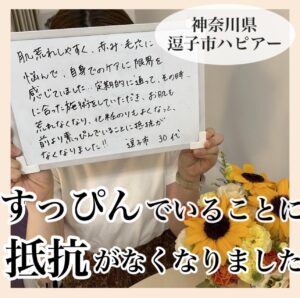 神奈川県
逗子市ハピアー
肌荒れしやすく、赤み・毛穴に
悩んで、自身でのケアに限界を
感じていました。定期的に通って、その時
に合った施術をしていただき、お肌も
荒れなくなり、化粧のりもよくなって、
前より素っぴんでいることに抵抗が
なくなりました!!
逗子市 30代
すっぴんでいることに
抵抗がなくなりました